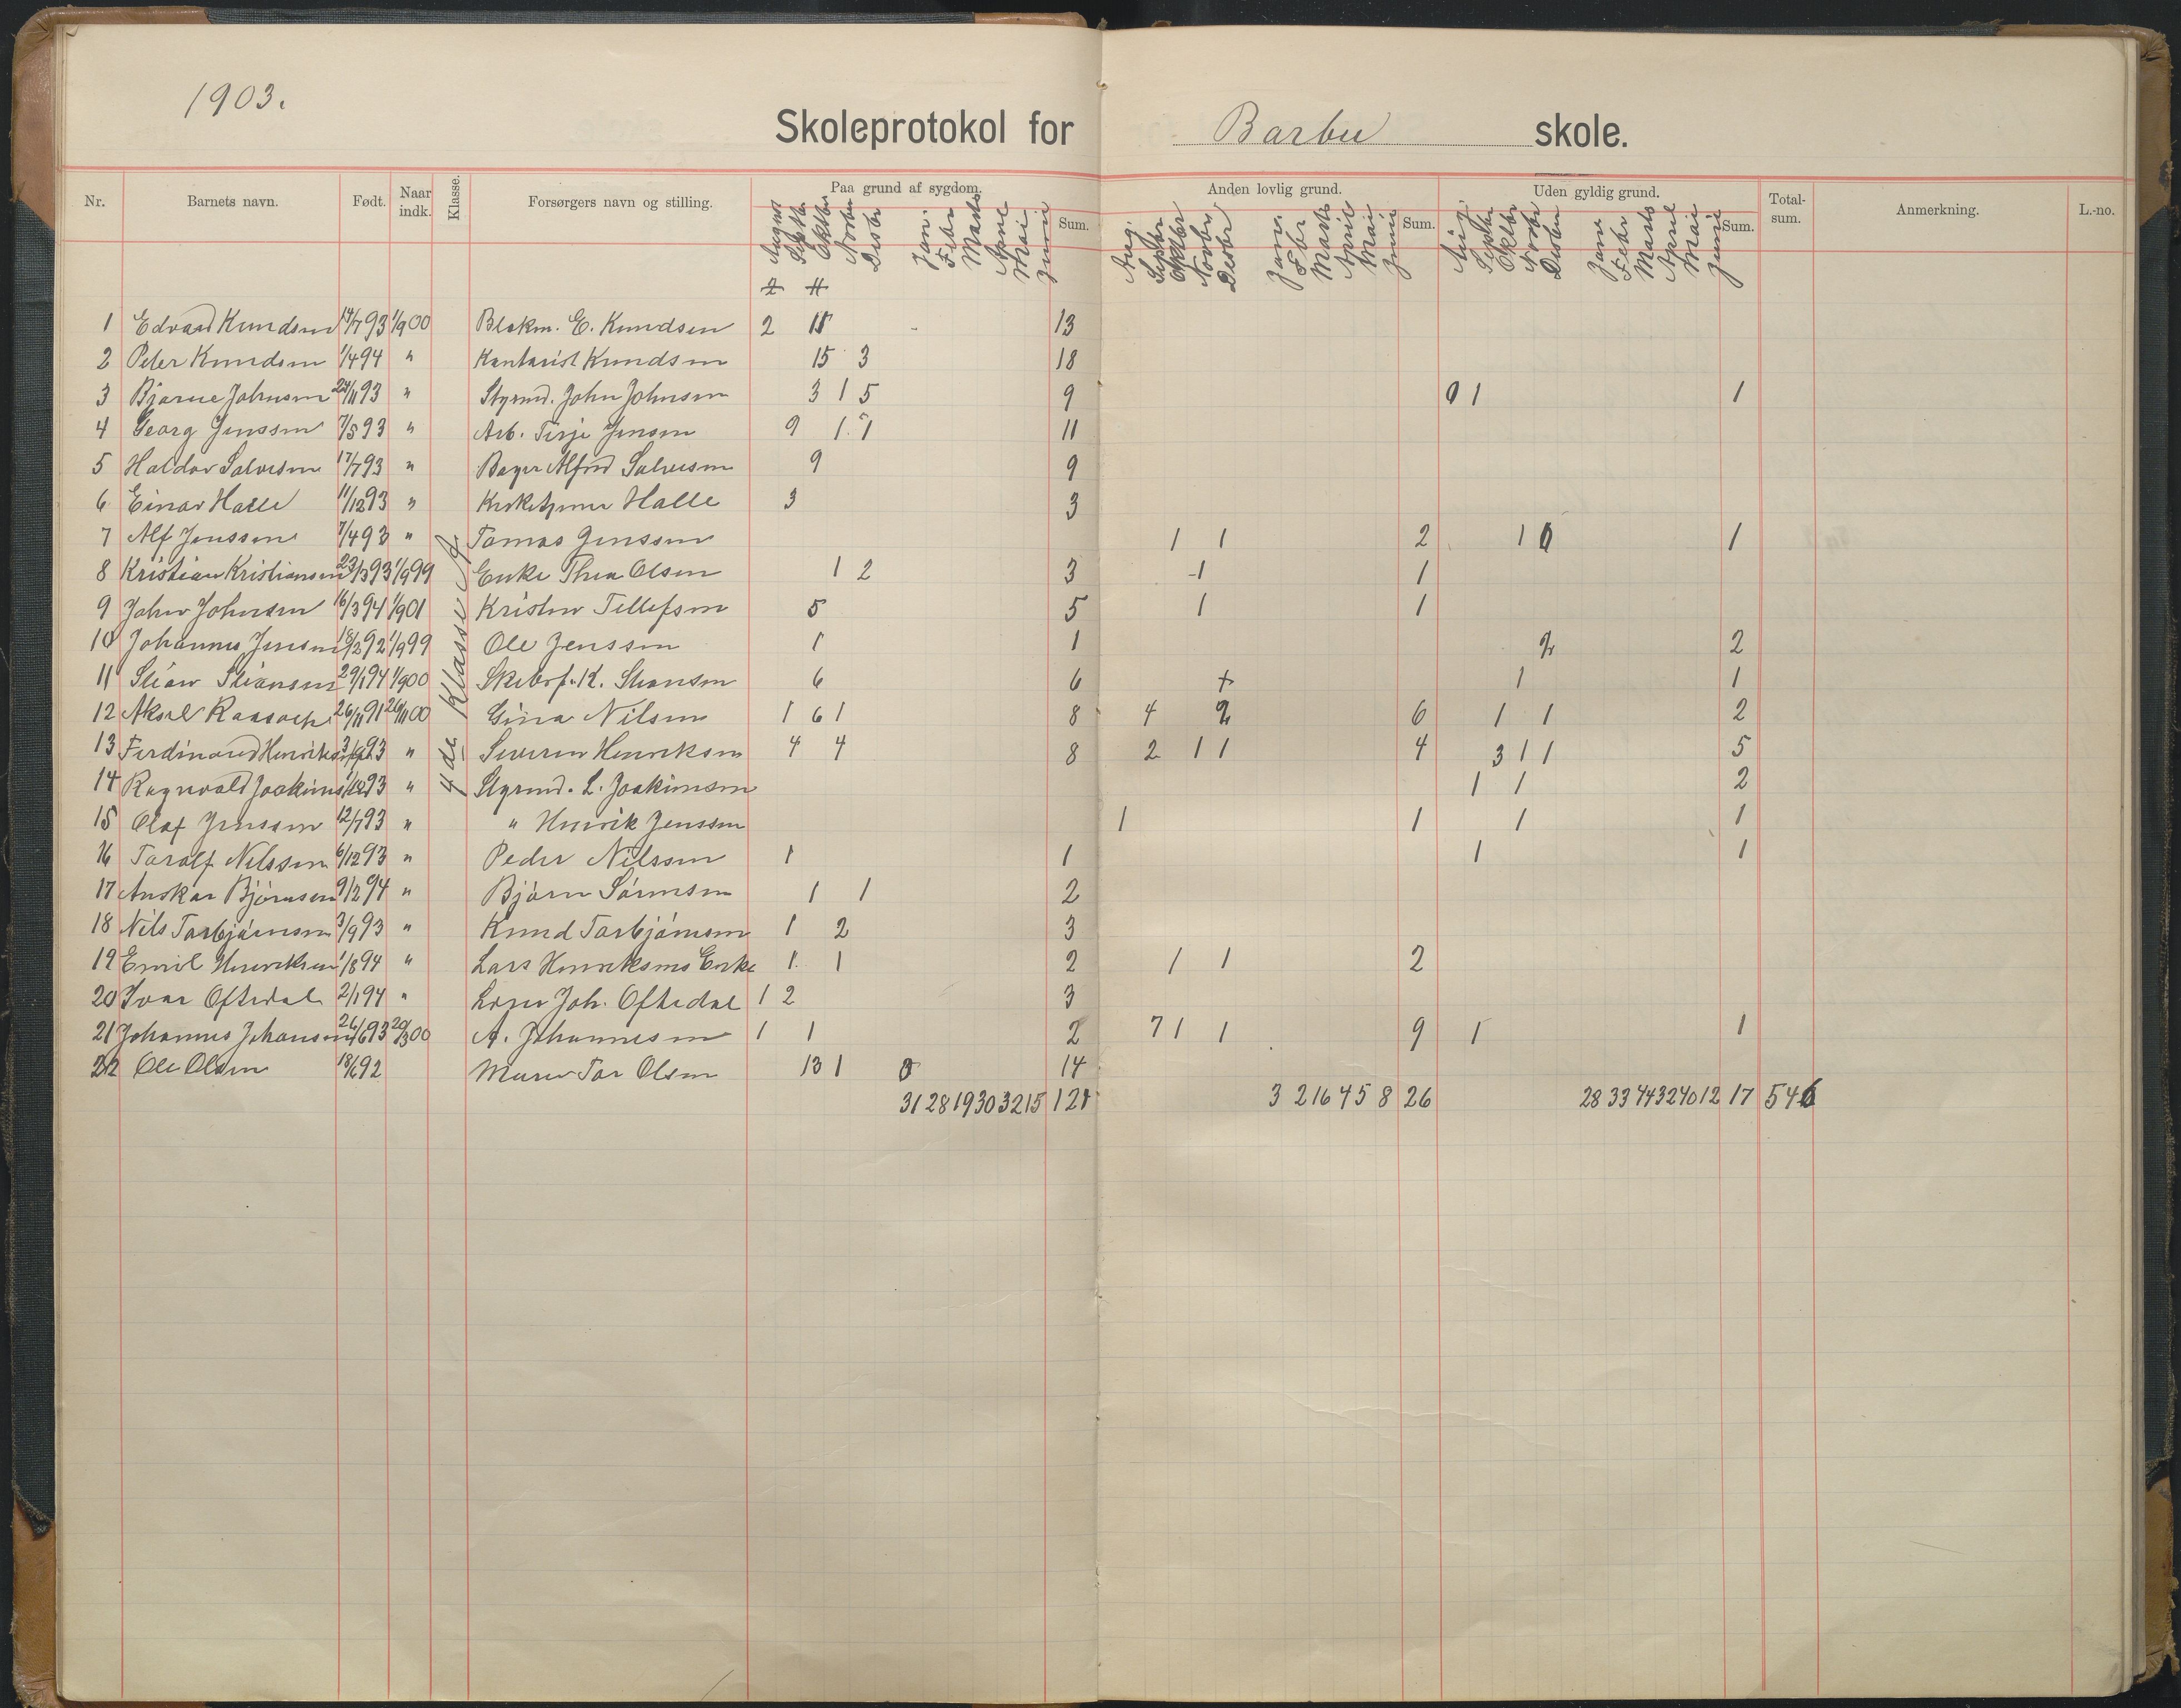 1903.
Skoleprotokol for Barbu skole.
Nr. Barnets navn. Født. Naar indk. Klasse. Forsørgers navn og stilling. Paa grund af sygdom. Sum. Anden lovlig grund. Sum. Uden gyldig grund. Sum. Total-sum. Anmerkning. L.-no.
August Septbr Oktbr Novbr Desbr Jan. Febr Marts April Mai Juni Aug. Septbr Oktbr Novbr Desbr Janr Febr Marts April Mai Juni Aug. Septbr Oktbr Novbr Desbr Janr Febr Marts April Mai Juni
4de Klasse
1 Edvard Knudsen 14/7 93 1/9 00 Blokm. E. Knudsen 2 11 13
2 Peter Knudsen 1/4 94 " Kontorist Knudsen 15 3 18
3 Bjarne Johnsen 24/11 93 " Styrmd. John Johnsen 3 1 5 9 0 1 1
4 Georg Jenssen 7/5 93 " Arb. Terje Jensen 9 1 1 11
5 Haldor Salvesen 17/7 93 " Bager Alfred Salvesen 9 9
6 Einar Halle 11/12 93 " Halle 3 3
7 Alf Jenssen 7/4 93 " Tomas Jenssen 1 1 2 1 0 1
8 Kristian Kristiansen 23/3 93 1/9 99 Enke Thea Olsen 1 2 3 1 1
9 John Johnsen 16/3 94 1/9 01 Kristen Tellefsen 5 5 1 1
10 Johannes Jensen 18/2 92 1/9 99 Ole Jenssen 1 1 2 2
11 Stian Stiansen 29/1 94 1/9 00 Skibsf. K. Stiansen 6 6 1 1
12 Aksel 26/11 91 26/11 00 Gina Nilsen 1 6 1 8 4 2 6 1 1 2
13 Ferdinand Henriksen 93 " Severin Henriksen 4 4 8 2 1 1 4 3 1 1 5
14 Ragnvald Joakims 93 " Styrmd. L. Joakimsen 1 1 2
15 Olaf Jenssen 12/7 93 " " Henrik Jenssen 1 1 1 1
16 Taralf Nilssen 6/12 93 " Peder Nilssen 1 1 1 1
17 Anskar Bjørnsen 9/2 94 " Bjørn Sørensen 1 1 2
18 Nils Torbjørnsen 3/9 93 " Knud Torbjørnsen 1 2 3
19 Emil Henriksen 1/8 94 " Lars Henriksens Enke 1 1 2 1 1 2
20 Ivar Oftedal 2/1 94 " Joh. Oftedal 1 2 3
21 Johannes Johansen 24/6 93 20/3 00 A. Johannesen 1 1 2 7 1 1 9 1 1
22 Ole Olsen 18/6 92 Murer Tor Olsen 13 1 14
31 28 19 30 32 15 121 3 2 16 4 5 8 26 28 33 44 32 40 12 17 546